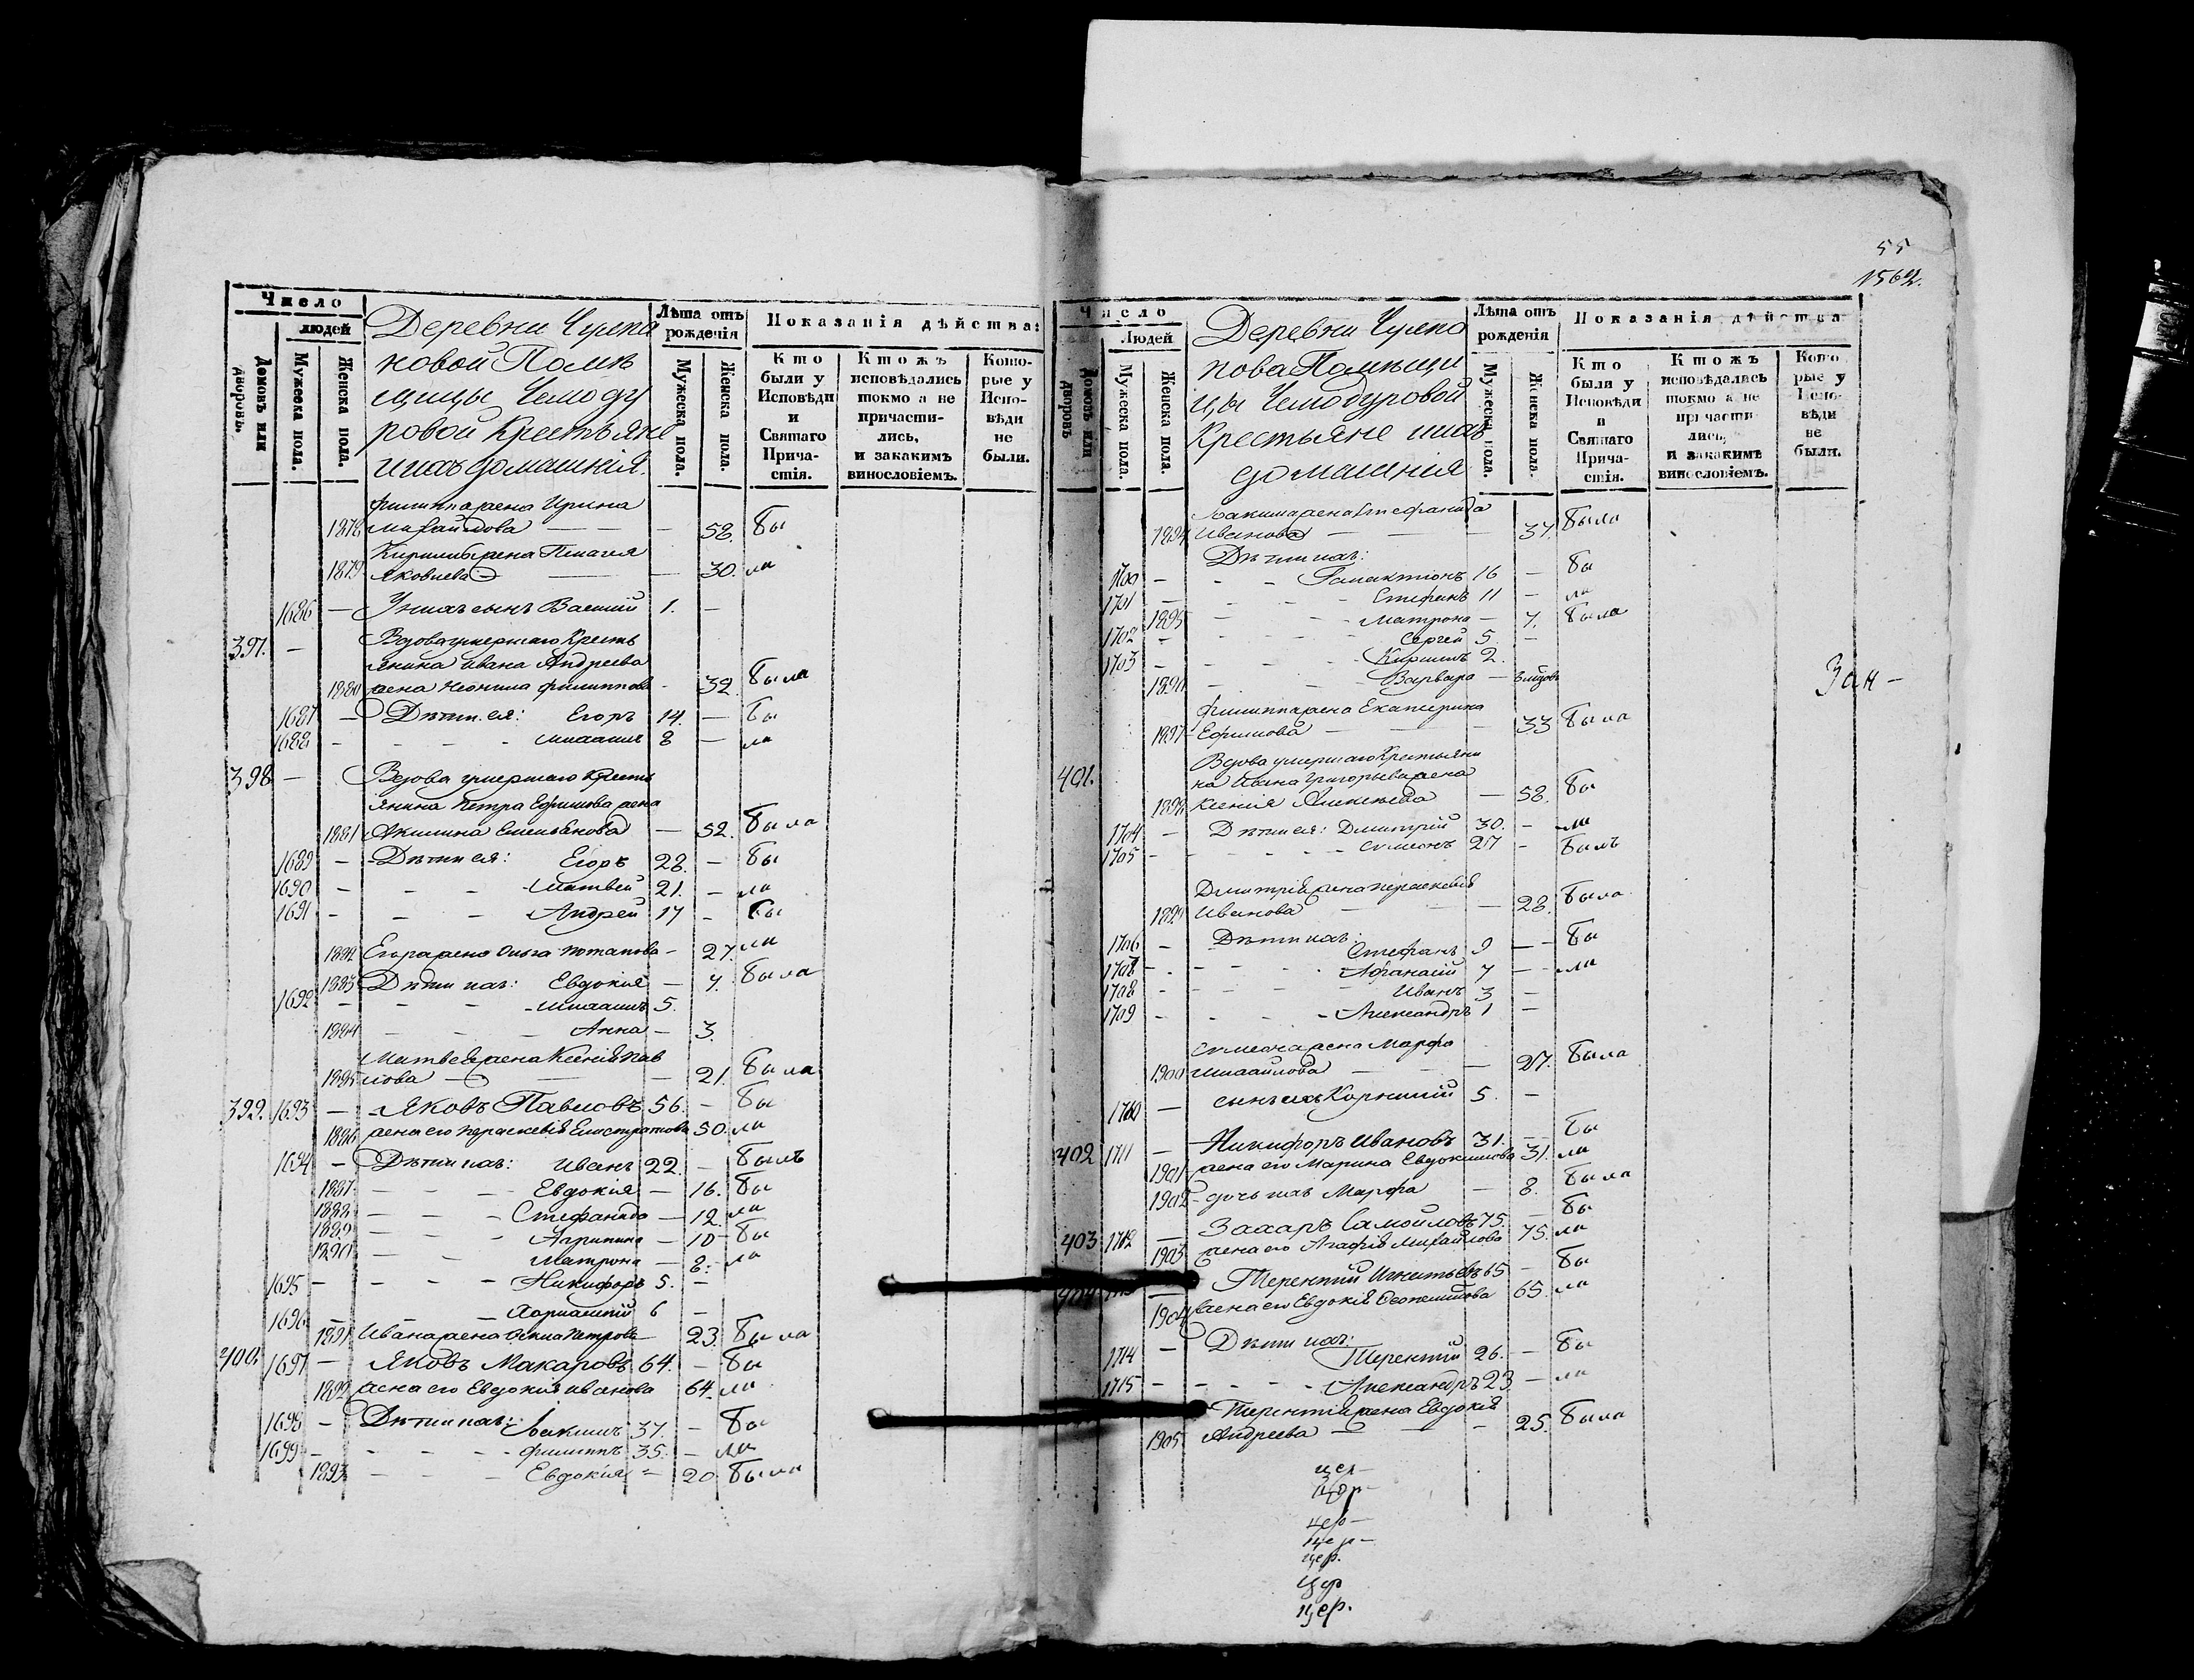 Число
людей
Домовъ или дворовъ.
Мужеска пола.
Женска пола.
Деревни Чулпа
новой Помѣ
щицы Чемоду
ровой Крестьяне
ихъ домашнія.
Лѣта отъ рожденія
Мужеска пола.
Женска пола.
Показанія дѣйства:
Кто были у Исповѣди и Святаго Причастія.
Ктожъ исповѣдались токмо а не причастились, и закакимъ винословіемъ.
Которые у Исповѣди не были.
Филиппа жена Ирина
1878 Михайлова — — 58. бы
Кирилы жена Пелагея
1879 Яковлева — — 30. ла
1686 — У нихъ сынъ Василій 1. —
397. — Вдова умершаго Кресть
янина Ивана Андреева
1880 жена Неонила Филиппова - 32. была
1687 — Дѣти ея: Егоръ 14. — бы
1688 - - - - Михаилъ 8 — ли
398 — Вдова умершаго Кресть
янина Петра Ефимова жена
1881 Акилина Емельянова — 52. была
1689 — Дѣти ея: Егоръ 28. — бы
1690 — - - Матвей 21. — ли
1691 - - - Андрей 17 - бы
1882 Егора жена Ольга Потапова - 27. ли
1883 Дѣти ихъ: Евдокія — 7. была
1692 — - - - Михаилъ 5.
1884 — - - Анна — 3.
Матвея жена Ксенія Пав
1885 лова — — — 21. была
399. 1693 — Яковъ Павловъ 56. - бы
1886 жена его Параскевія Елистратова 50. ли
1694 — Дѣти ихъ: Иванъ 22. — былъ
1887 — - - Евдокія — 16. бы
1888 — - - Стефанида — 12. ли
1889 — - - Агрипина — 10 - бы
1890 — - - Матрона — 8. ли
1695 — - - - Никифоръ 5. —
1696 — — - 6 —
1891 Ивана жена Петрова — 23. была
400. 1697 — Яковъ Макаровъ 64. — бы
1892 жена его Евдокия Иванова 64. ли
1698 — Дѣти ихъ: Іоакимъ 37. - бы
1699 — - - - Филиппъ 35. — ли
1893 — - - Евдокія - 20. была
55
1562.
Число
Людей
Домовъ или дворовъ
Мужеска пола.
Женска пола.
Деревни Чулпа
нова Помѣщи
цы Чемодуровой
Крестьяне ихъ
домашнія
Лѣта отъ рожденія
Мужеска пола.
Женска пола.
Показанія дѣйства
Кто были у Исповѣди и Святаго Причастія.
Ктожъ исповѣдались токмо а не причастились, и закакимъ винословіемъ.
Которые у Исповѣди не были.
Іоакима жена Стефанида
1894 Иванова — — — 37. была
Дѣти ихъ:
1700 — - - Галактіонъ 16 — бы
1701 — - - Стефанъ 11 — ли
1895 - - - Матрона — 7. была
1702 - - - - Сергей 5. —
1703 - - - - Кирилъ 2.
1896 - - - Варвара —
Зак -
Филиппа жена Екатерина
1897 Ефимова — — 33 была
401. Вдова умершаго Крестьяни
на Ивана Григорьева жена
1898 Ксенія Алексѣева — 58. бы
1704 — Дѣти ея: Дмитрій 30. - ли
1705 - - - - Симеонъ 27 - былъ
Дмитрія жена Параскевія
1899 Иванова — — — 28. была
1706 — Дѣти ихъ:
Стефанъ 9 — - бы
1707 - - - - Афанасій 7 — - ли
1708 - - - - Иванъ 3 —
1709 - - - - Александръ 1 —
Симеона жена Марфа
1900 Михайлова — — — 27. была
1710 — сынъ ихъ Корнилій 5. —
402 1711 — Никифоръ Ивановъ 31. — бы
1901 жена его Марина Евдокимова 31. ли
1902 - дочь ихъ Марфа — 8. была
403 1712 — Захаръ Самойловъ 75. — бы
1903 жена его Агафія Михайлова 75. ли
Терентій Игнатьевъ 65 — бы
1904 жена его Евдокія 65. ли
Дѣти ихъ:
1714 — Терентій 26. — бы
1715 - - - - Александръ 23 — ли
Терентія жена Евдокія
1905 Андреева — — - 25. была
цер—
цер—
цер—
цер—
цер.
цер
цер.